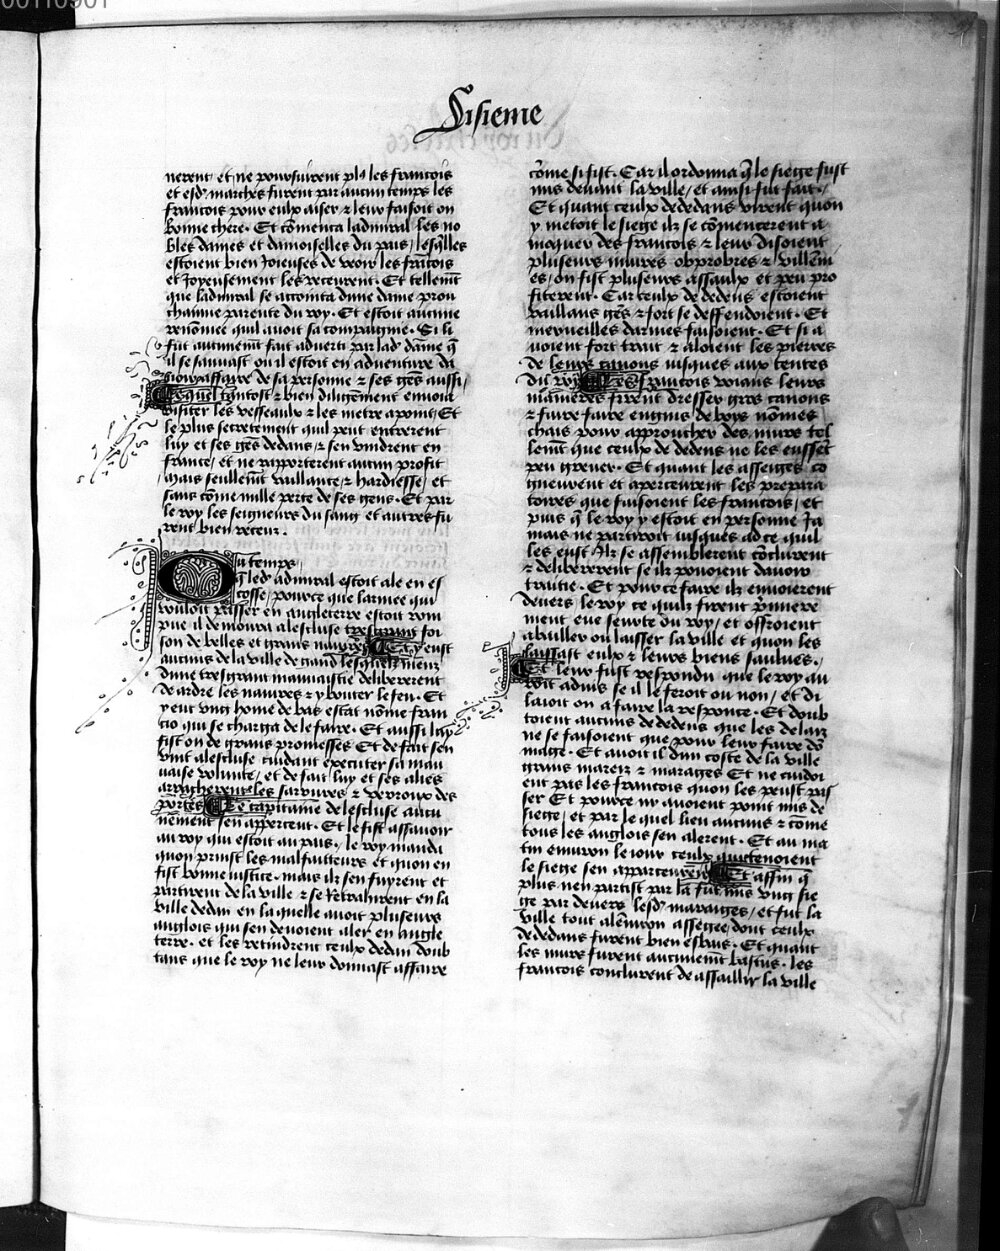 00110901
Sisieme
nerent et ne poursuirent pl9 les francois
et esd marches furent par aucun temps les
francois pour eulx aiser ⁊ leur faisoit on
bonne chere. Et cōmenca ladmiral les no
bles dames et damoiselles du pais / lesq̄lles
estoient bien Joieuses de veoir les frācois
et Joyeusement les receurent. Et tellemēt
que ladmiral se accointa dune dame prou
chainne parente du roy. Et estoit aucune
renōmee quil auoit sa compaignie. Si li
fut aucunemēt fait aduerti par lad dame q̄
il se sauuast ou il estoit en aduenture da
uoir affaire de sa personne ⁊ ses gēs aussi /
Lequel tantost ⁊ bien diligēment enuoia
visiter les vesseaulx ⁊ les metre a point / Et
le plus secretement quil peut entrerent
luy et ses gēs dedans / ⁊ sen vindrent en
france / et ne rapporterent aucun profit
mais seullemēt vaillance ⁊ hardiesse / et
sans cōme nulle perte de ses gens. Et par
le roy les seigneurs du sang et autres fu
rent bien receuz.
Du temps
q̄ led admiral estoit ale en es
cosse / pource que larmee qui
vouloit passer en angleterre estoit rom
pue il demoura a lescluse tresgrant foi
son de belles et grans nauires Et y eust
aucuns de la ville de gand lesquelz meuz
dune tresgrant mauuaistie delibererent
de ardre les nauires ⁊ y bouter le feu. Et
y eut ung home de bas estat nōme fran
cio qui se charga de le faire. Et aussi luy
fist on de grans promesses Et de fait sen
vint a lescluse cuidant executer sa mau
uaise volunte / et de fait luy et ses alies
arracherent les sarrures ⁊ verroux des
portes Le capitaine de lescluse aucu
nement sen appercent. Et le fist assauoir
au roy qui estoit au pais / le roy manda
quon prinst les malfaitteurs et quon en
fist bonne iustice. mais ilz sen fuyrent et
partirent de la ville ⁊ se retrahirent en la
ville dedan en la quelle auoit plusieurs
anglois qui sen deuoient aler en angle
terre. et les retindrent ceulx dedan doub
tans que le roy ne leur donnast affaire
cōme si fist. Car il ordonna q̄ le siege fust
mis deuant la ville / et ainsi fut fait.
Et quant ceulx dededans virent quon
y metoit le siege ilz se cōmencerent a
moquer des francois ⁊ leur disoient
plusieurs iniures obprobres ⁊ villēni
es / on fist plusieurs assaulx et peu pro
fiterent. Car ceulx de dedens estoient
vaillans gēs ⁊ fort se deffendoient. Et
merueilles darmes faisoient. Et si a
uoient fort trait ⁊ aloient les pierres
de leurs canons iusques aux tentes
du roy Les francois voians leurs
manieres firent dresser gros canons
⁊ faire faire engins de boys nōmes
chais pour approucher des murs tel
lemēt que ceulx de dedens ne les eussēt
peu greuer. Et quant les asseiges co
gneurent et apercenrent les prepara
toires que faisoient les francois / et
puis q̄ le roy y estoit en personne Ja
mais ne partiroit iusques ad ce quil
les eust Ilz se assemblerent cōclurent
⁊ delibererent se ilz pouoient dauoir
traitie. Et pour ce faire ilz enuoierent
deuers le roy ce quilz firent p̄miere
ment eue seurte du roy / et offroient
a bailler ou laisser la ville et quon les
laissast eulx ⁊ leurs biens saulues.
Et leur fust respondu que le roy au
roit aduis se il le feroit ou non / et di
laioit on a faire la response. Et doub
toient aucuns de dedens que les delaiz
ne se faisoient que pour leur faire dō
mage. Et auoit il dun coste de la ville
grans marez ⁊ marages Et ne cuidoi
ent pas les francois quon les peust pas
ser Et pource ny auoient point mis de
siege / et par le quel lieu aucuns ⁊ cōme
tous les anglois sen alerent. Et au ma
tin enuiron le iour ceulx qui tenoient
le siege sen apparceurent Et affin q̄
plus nen partist par la fut mis ung sie
ge par deuers lesd maraiges / et fut la
ville tout alenuiron assegee / dont ceulx
dededans furent bien esbais. Et quant
les murs furent aucunemēt bastus. les
francois conclurent de assaillir la ville